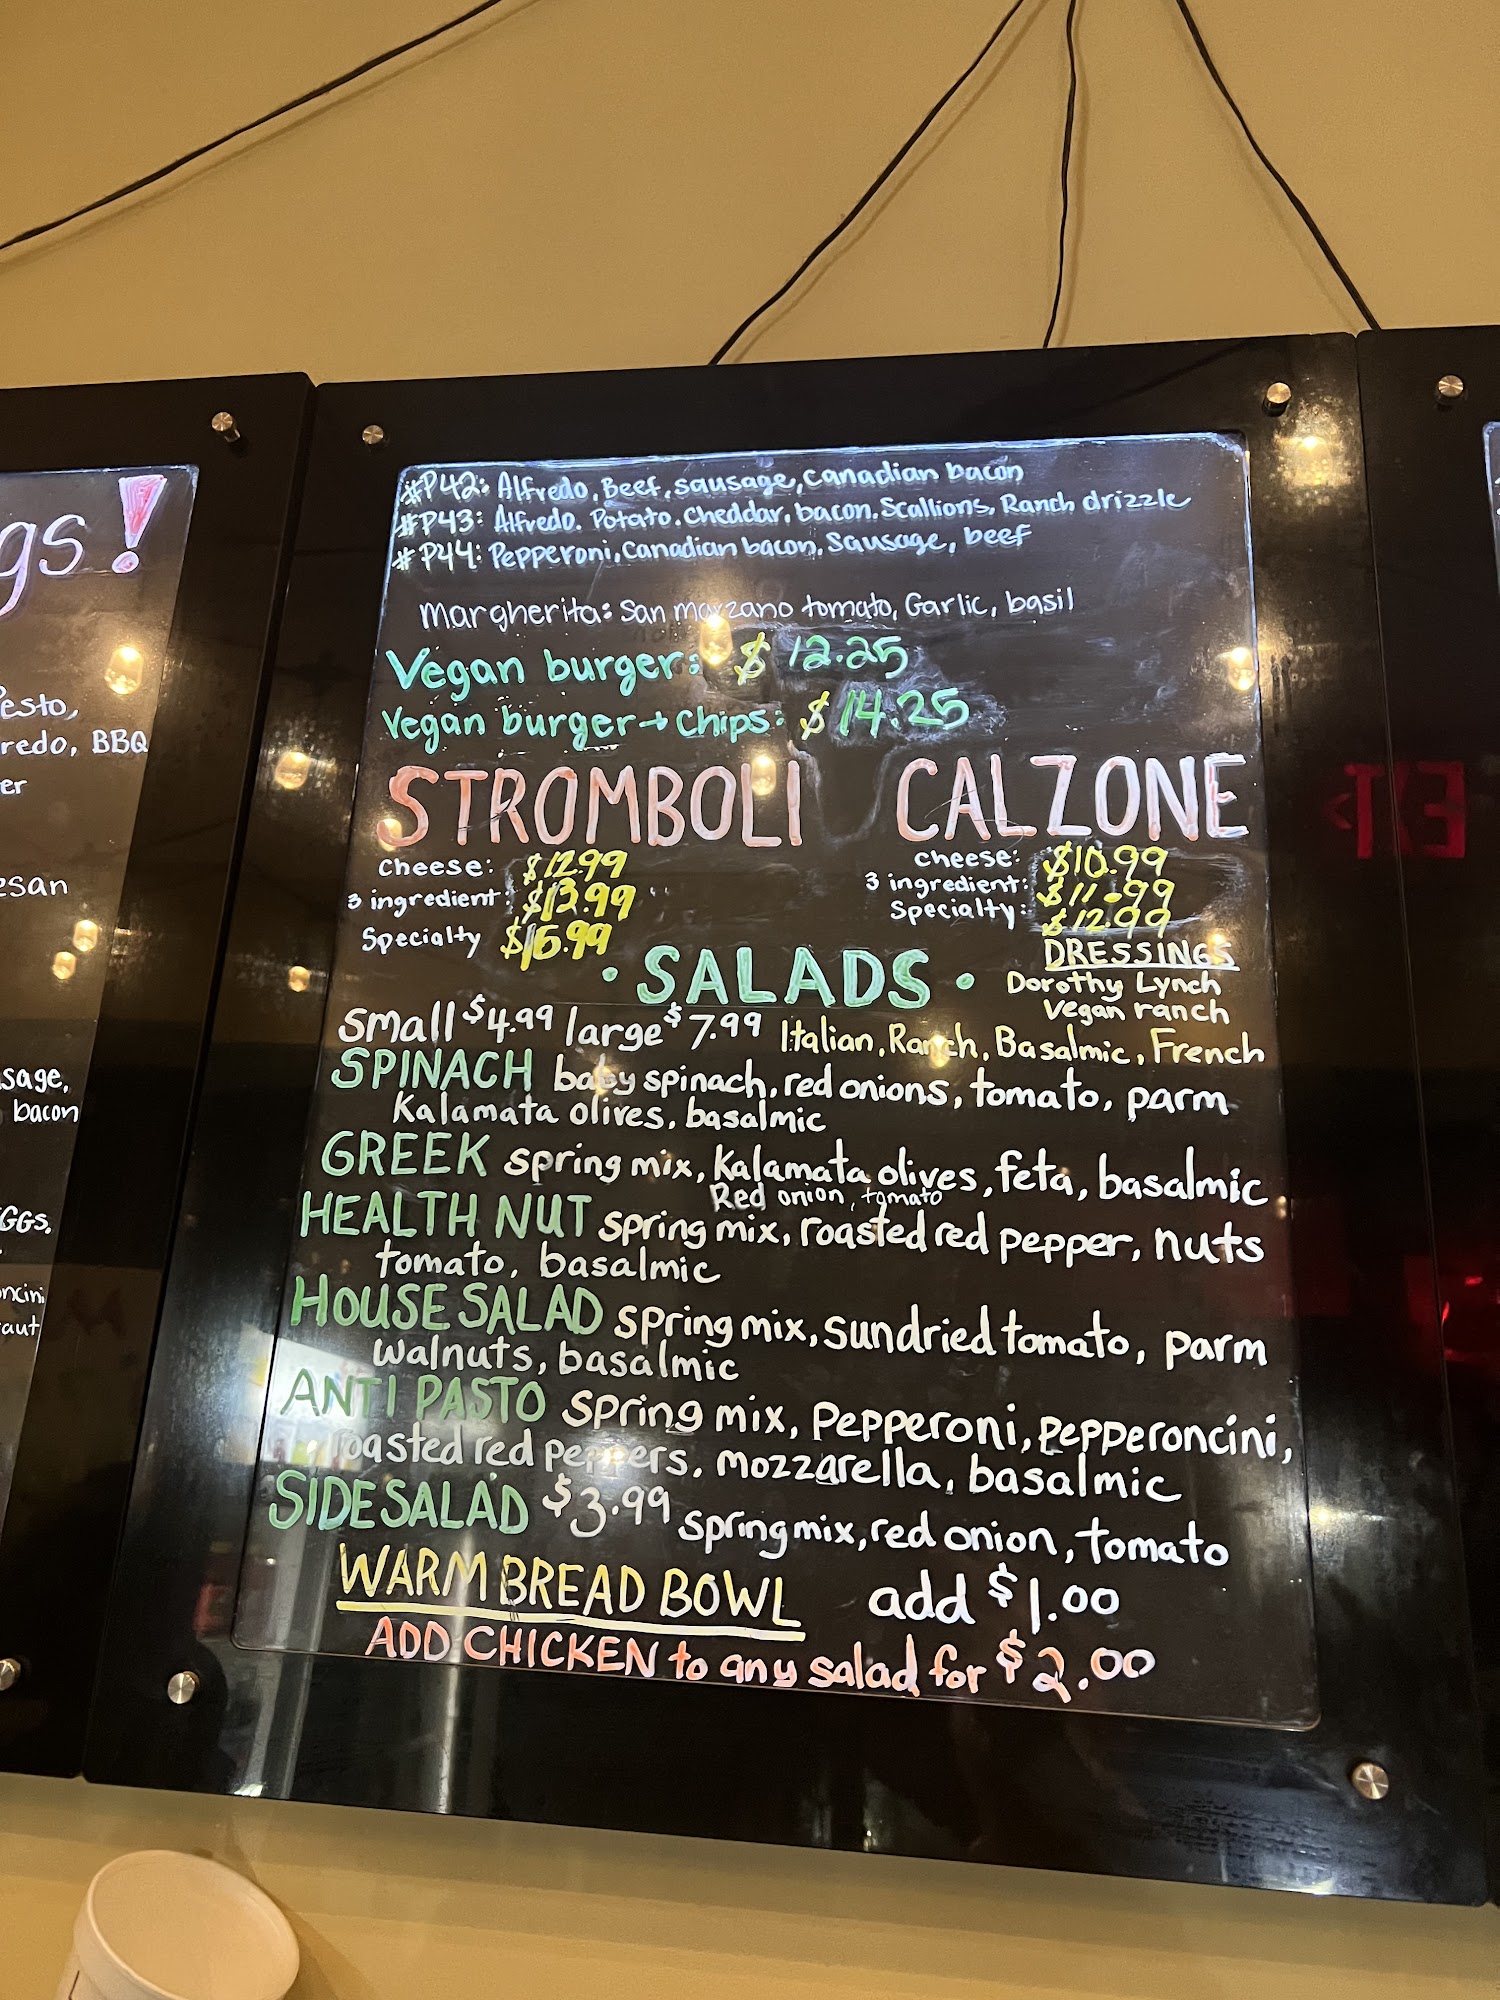 gs!
esto,
redo, BBQ
er
esan
sage,
bacon
GGS,
ncini
aut
#P42: Alfredo, Beef, sausage, Canadian bacon
#P43: Alfredo. Potato. Cheddar, bacon. Scallions, Ranch drizzle
#P44: Pepperoni, Canadian bacon, Sausage, beef
Margherita: San marzano tomato, Garlic, basil
Vegan burger: $12.25
Vegan burger → Chips: $14.25
STROMBOLI
Cheese: $12.99
3 ingredient: $13.99
Specialty
CALZONE
Cheese: $10.99
3 ingredient: $11.99
Specialty: $12.99
• SALADS •
DRESSINGS
Dorothy Lynch
Vegan ranch
Italian, Ranch, Basalmic, French
small $4.99 large $7.99
SPINACH baby spinach, red onions, tomato, parm
Kalamata olives, basalmic
GREEK spring mix, Kalamata olives, feta, basalmic
Red onion, tomato
HEALTH NUT spring mix, roasted red pepper, nuts
tomato, basalmic
HOUSE SALAD spring mix, sundried tomato, parm
walnuts, basalmic
ANTI PASTO spring mix, Pepperoni, pepperoncini,
roasted red peppers, mozzarella, basalmic
SIDE SALAD $3.99 spring mix, red onion, tomato
WARM BREAD BOWL add $1.00
ADD CHICKEN to any salad for $2.00
EXIT